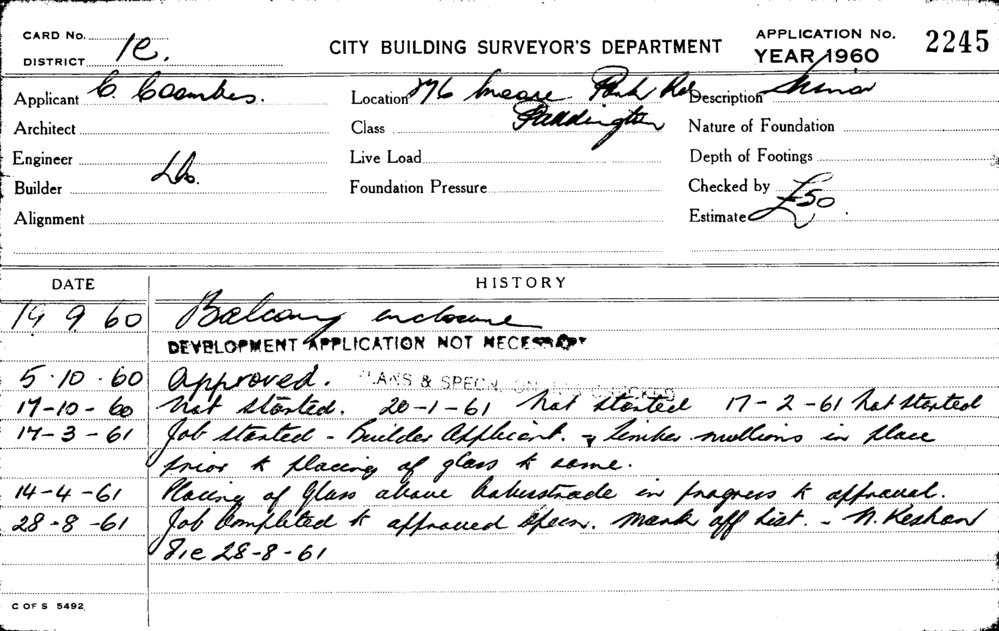 CARD No.
DISTRICT 1c.
CITY BUILDING SURVEYOR'S DEPARTMENT
APPLICATION No. 2245
YEAR 1960
Applicant C. Coombes.
Location 276 Moore Park Rd
Paddington
Description Minor
Architect
Class
Nature of Foundation
Engineer
Live Load
Depth of Footings
Builder Do.
Foundation Pressure
Checked by
Alignment
Estimate £50.
DATE HISTORY
19 9 60 Balcony enclosure
DEVELOPMENT APPLICATION NOT NECESSARY
5.10.60 Approved. PLANS & SPECN. CHECKED
17-10-60 Not started. 20-1-61 Not started 17-2-61 Not started
17-3-61 Job started - Builder Applicant. - Timber mullions in place
prior to placing of glass to same.
14-4-61 Placing of Glass above balustrade in progress to approval.
28-8-61 Job Completed to approved specn. Mark off list. - N.
28-8-61
C OF S 5492